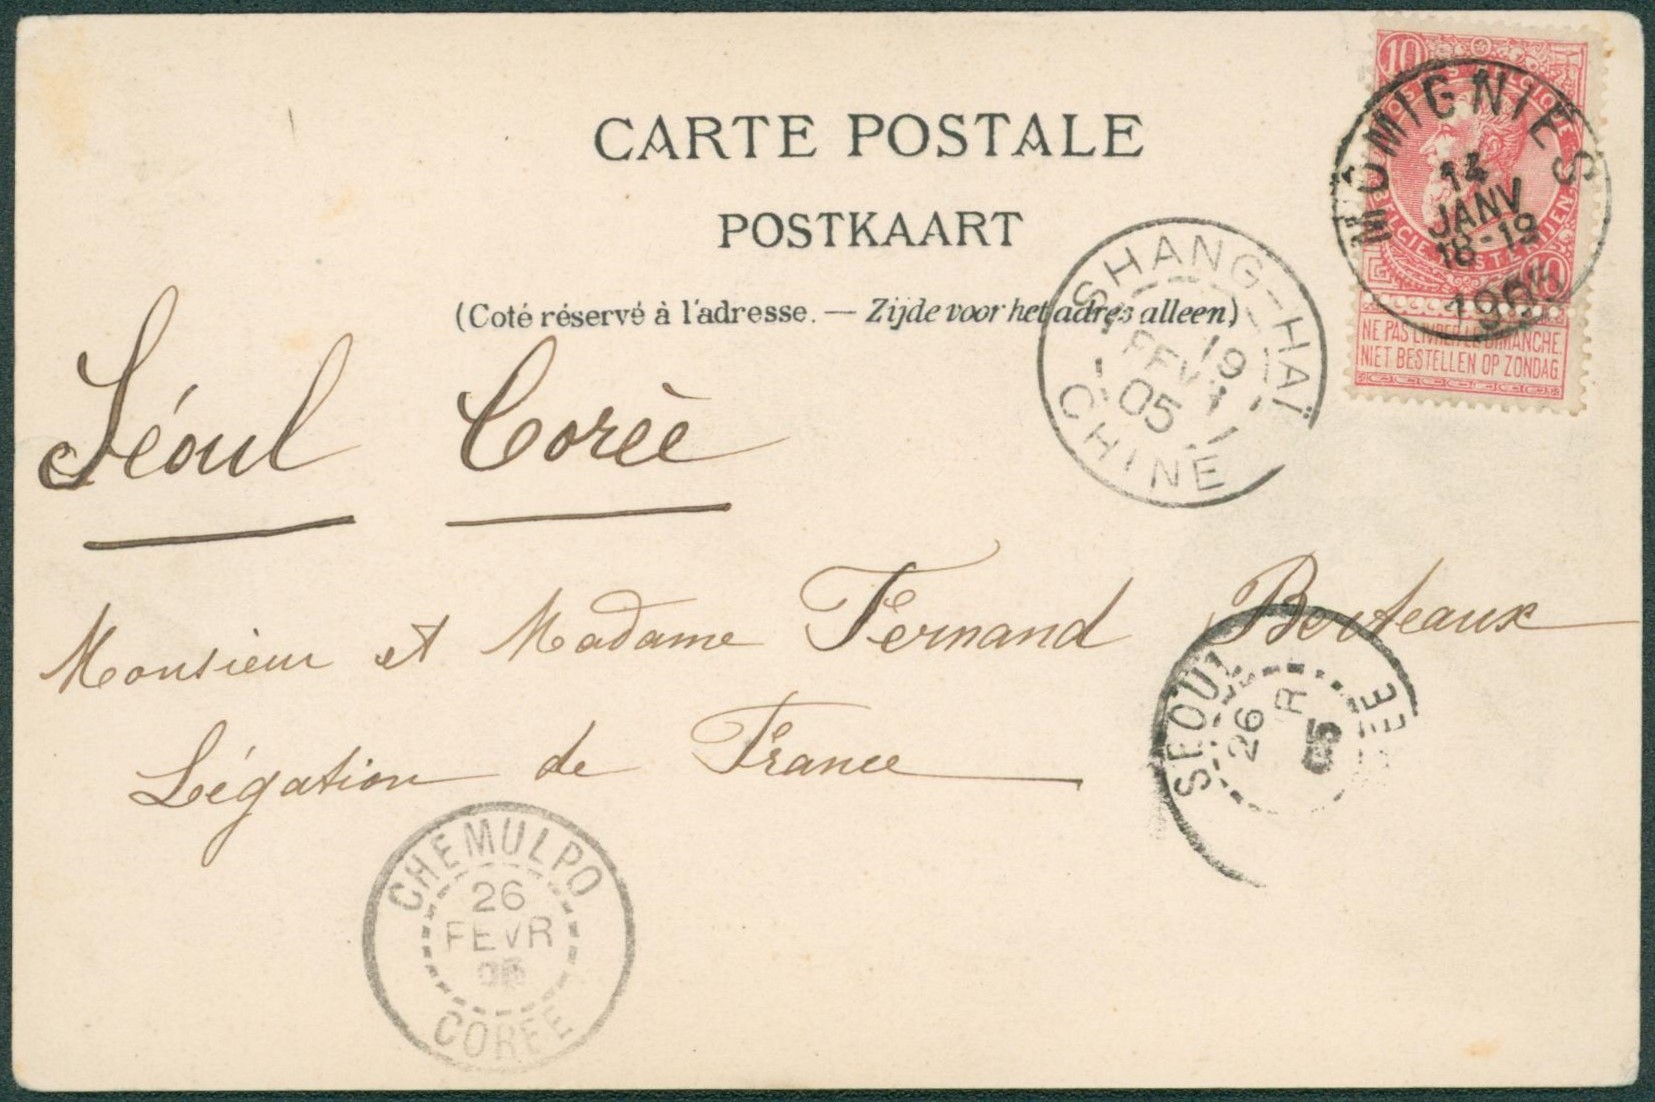 CARTE POSTALE
POSTKAART
(Coté réservé à l'adresse. — Zijde voor het adres alleen)
10
POSTES BELGIQUE
BELGIË POSTERIJEN
10
NE PAS LIVRER LE DIMANCHE
NIET BESTELLEN OP ZONDAG
MOMIGNIES
14
JANV
18-19
SHANG-HAÏ
19
FEVR
05
CHINE
Séoul Corèe
Monsieur et Madame Fernand Berteaux
Légation de France
SEOUL
26
R
05
CHEMULPO
26
FEVR
COREE